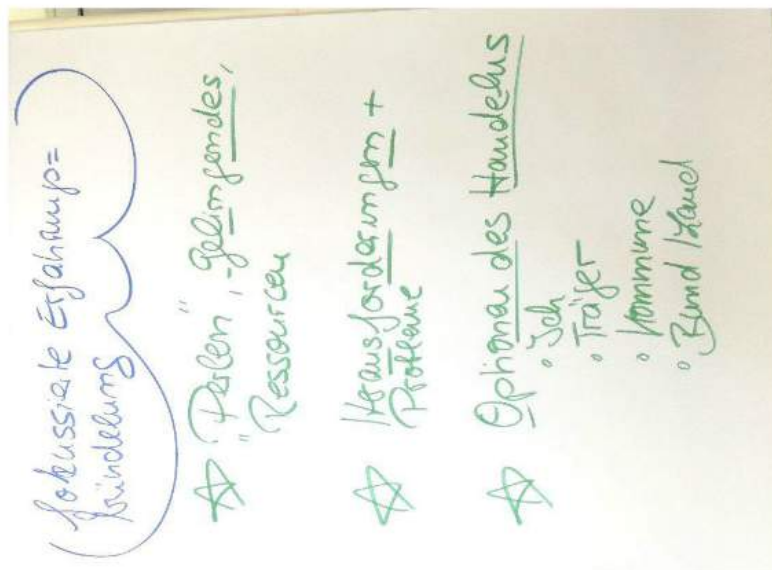 fokussierte Erfahrungs=
bündelung
☆ "Perlen", gelingendes,
Ressourcen
☆ Herausforderungen +
Probleme
☆ Optionen des Handelns
• Ich
• Träger
• Kommune
• Bund / Land